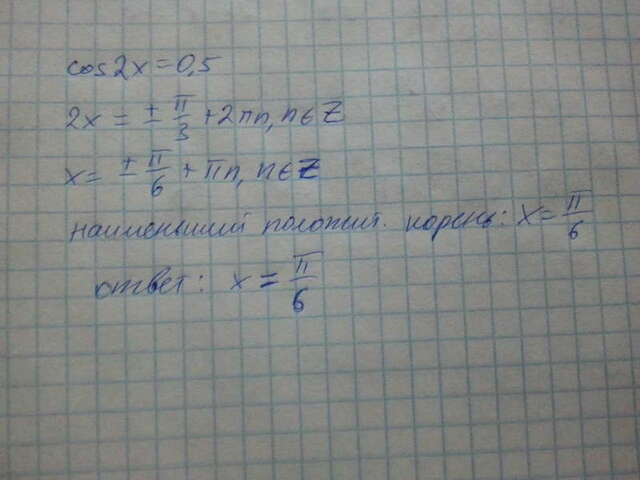 cos2x=0,5
2x = ± π/3 + 2πn, n∈Z
x= ± π/6 + πn, n∈Z
наименьший положит. корень: x= π/6
ответ: x = π/6